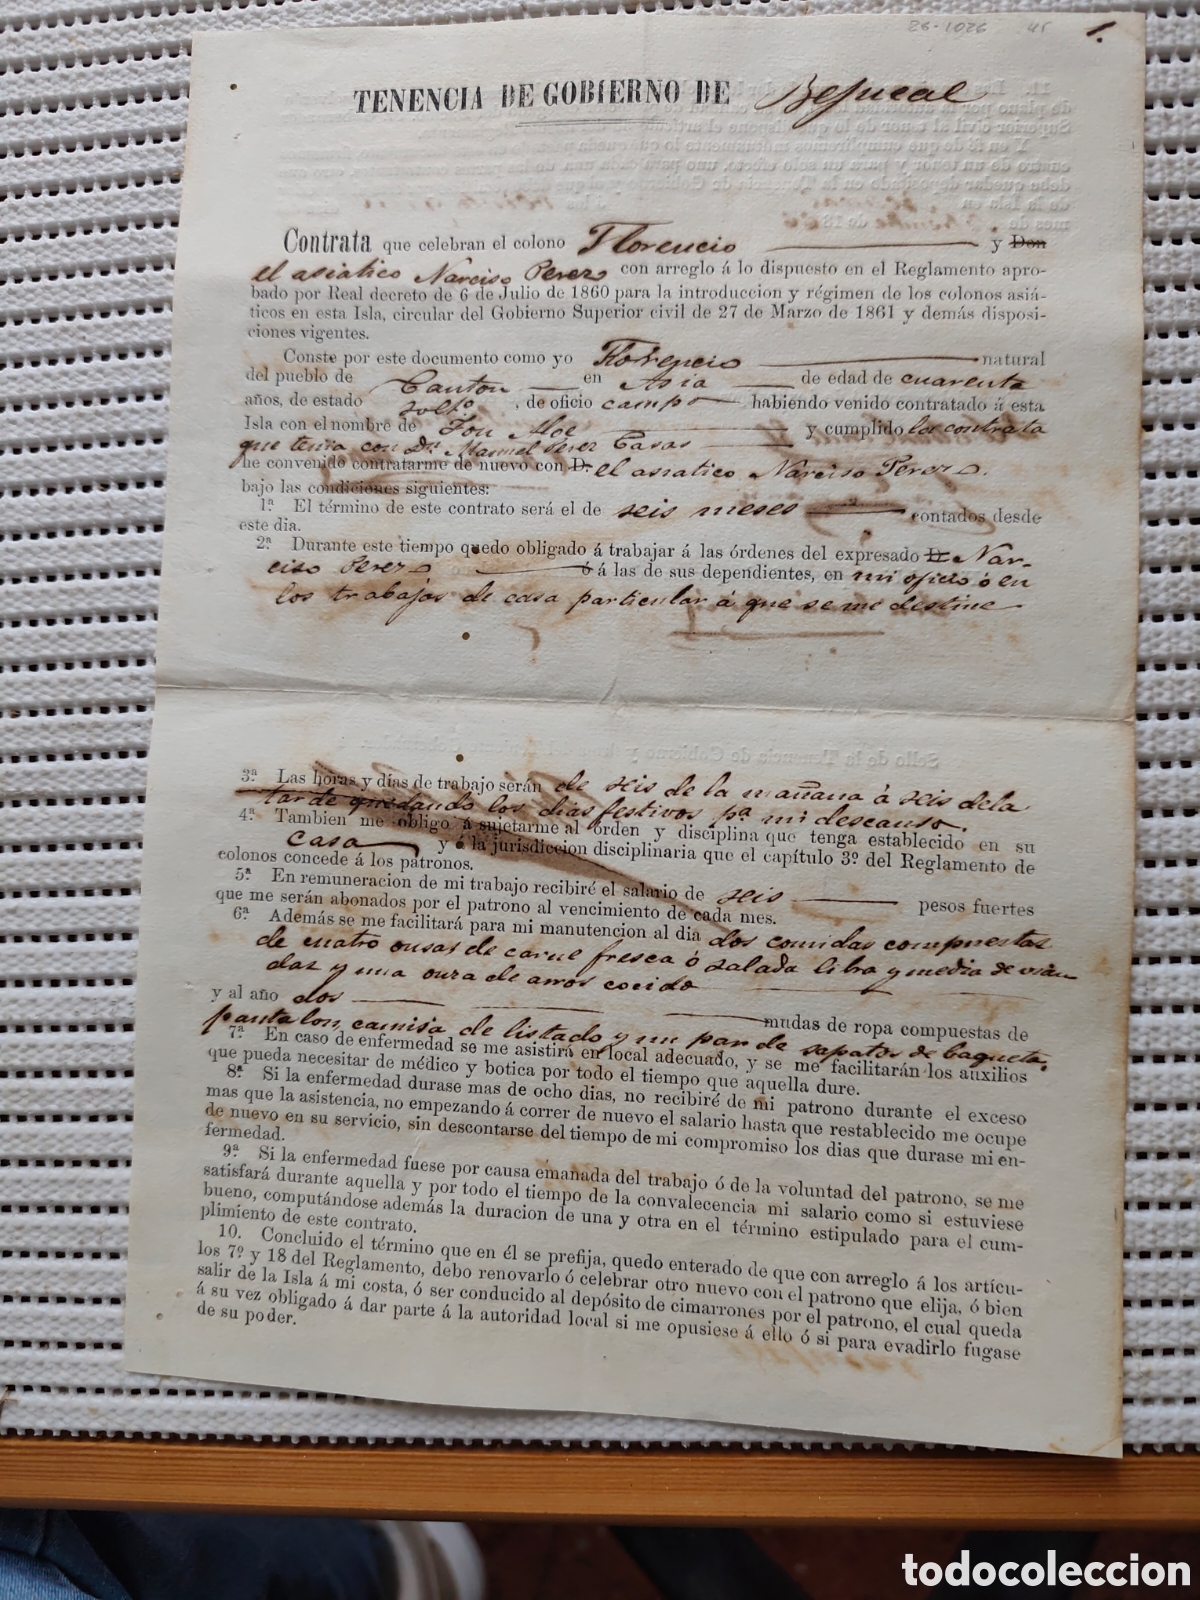 26-1026 45 1.
TENENCIA DE GOBIERNO DE Bejucal
Contrata que celebran el colono Florencio y Don
el asiatico Narciso Perez con arreglo á lo dispuesto en el Reglamento apro-
bado por Real decreto de 6 de Julio de 1860 para la introduccion y régimen de los colonos asiá-
ticos en esta Isla, circular del Gobierno Superior civil de 27 de Marzo de 1861 y demás disposi-
ciones vigentes.
Conste por este documento como yo Florencio natural
del pueblo de Canton en Asia de edad de cuarenta
años, de estado solto. , de oficio campo habiendo venido contratado á esta
Isla con el nombre de Fou Aloe y cumplido la contrata
que tenia con Dn. Manuel Perez Casas
he convenido contratarme de nuevo con D. el asiatico Narciso Perez.
bajo las condiciones siguientes:
1ª El término de este contrato será el de seis meses contados desde
este dia.
2ª Durante este tiempo quedo obligado á trabajar á las órdenes del expresado D. Nar-
ciso Perez ó á las de sus dependientes, en mi oficio ó en
los trabajos de casa particular á que se me destine
3ª Las horas y dias de trabajo serán de seis de la mañana á seis de la
tarde quedando los dias festivos pª mi descanso.
4ª Tambien me obligo á sujetarme al órden y disciplina que tenga establecido en su
casa y á la jurisdiccion disciplinaria que el capítulo 3º del Reglamento de
colonos concede á los patronos.
5ª En remuneracion de mi trabajo recibiré el salario de seis pesos fuertes
que me serán abonados por el patrono al vencimiento de cada mes.
6ª Además se me facilitará para mi manutencion al dia dos comidas compuestas
de cuatro onsas de carne fresca ó salada libra y media de vian
das y una onza de arros cocido
y al año dos mudas de ropa compuestas de
pantalon, camisa de listado y un par de sapatos de baqueta.
7ª En caso de enfermedad se me asistirá en local adecuado, y se me facilitarán los auxilios
que pueda necesitar de médico y botica por todo el tiempo que aquella dure.
8ª Si la enfermedad durase mas de ocho dias, no recibiré de mi patrono durante el exceso
mas que la asistencia, no empezando á correr de nuevo el salario hasta que restablecido me ocupe
de nuevo en su servicio, sin descontarse del tiempo de mi compromiso los dias que durase mi en-
fermedad.
9ª Si la enfermedad fuese por causa emanada del trabajo ó de la voluntad del patrono, se me
satisfará durante aquella y por todo el tiempo de la convalecencia mi salario como si estuviese
bueno, computándose además la duracion de una y otra en el término estipulado para el cum-
plimiento de este contrato.
10. Concluido el término que en él se prefija, quedo enterado de que con arreglo á los artícu-
los 7º y 18 del Reglamento, debo renovarlo ó celebrar otro nuevo con el patrono que elija, ó bien
salir de la Isla á mi costa, ó ser conducido al depósito de cimarrones por el patrono, el cual queda
á su vez obligado á dar parte á la autoridad local si me opusiese á ello ó si para evadirlo fugase
de su poder.
todocoleccion